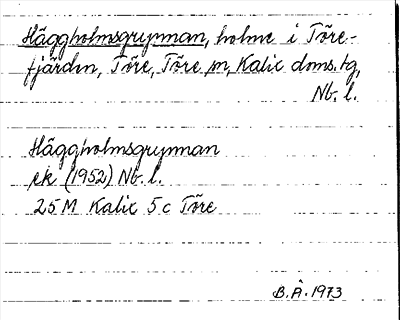 Häggholmsgrynnan, holme i Töre-
fjärden, Töre, Töre sn, Kalix doms.tg,
Nb. l.
Häggholmsgrynnan
ek (1952) Nb. l.
25M Kalix 5c Töre
B.Å. 1973